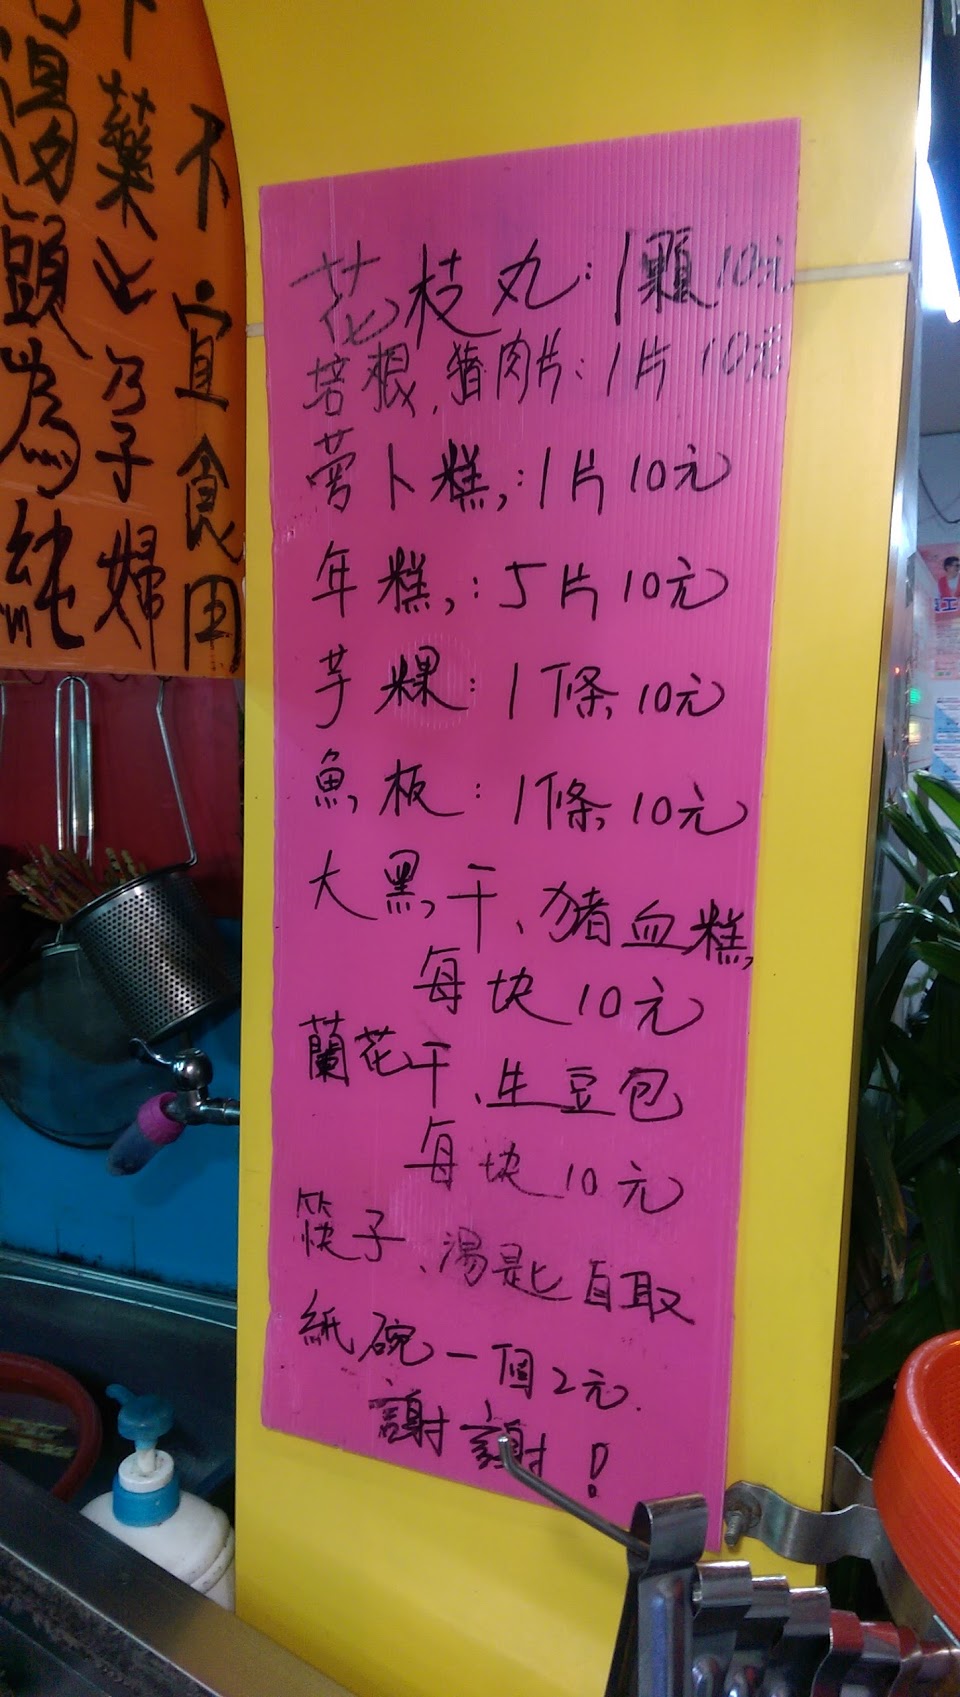 花枝丸：1顆10元
培根、豬肉片：1片10元
蔔卜糕：1片10元
年糕：5片10元
芋粿：1條10元
魚板：1條10元
大黑干、豬血糕
每块10元
蘭花干、生豆包
每块10元
筷子、湯匙自取
紙碗一個2元.
謝謝！
不宜食用
藥少孕婦
湯頭為純